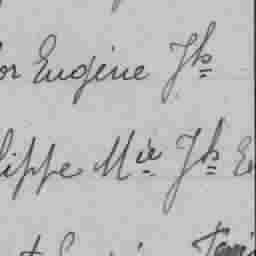 or Eugène Jh
lippe Mie Jh E